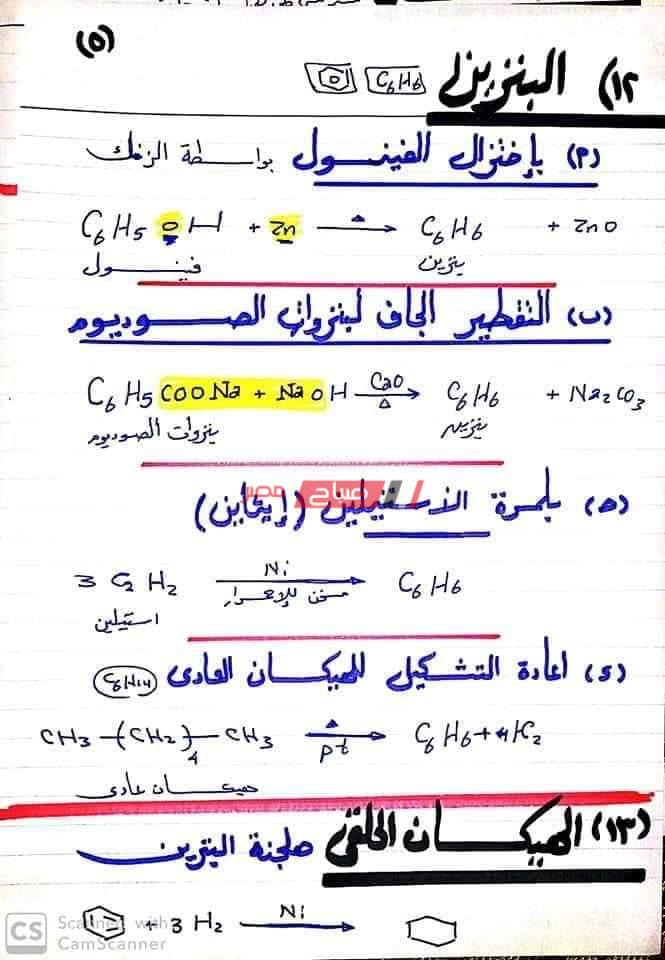 (٥)
١٢) البنزين C6H6
(P) بإختزال الفينول بواسطة الزنك
C6H5OH + Zn △ C6H6 + ZnO
فينول بنزين
(ب) التقطير الجاف لبنزوات الصوديوم
C6H5COONa + NaOH CaO △ C6H6 + Na2CO3
بنزوات الصوديوم بنزين
صباح مصر
(ه) بلمرة الأستيلين (إيثاين)
3 C2H2 Ni C6H6
مسخن للإحمرار
استيلين
(د) اعادة التشكيل للهيكسان العادى C6H14
CH3-(CH2)4-CH3 △ pt C6H6+4H2
هيكسان عادى
(١٣) الهيكسان الحلقى هلجنة البنزين
+ 3 H2 Ni
CS Scanned with
CamScanner